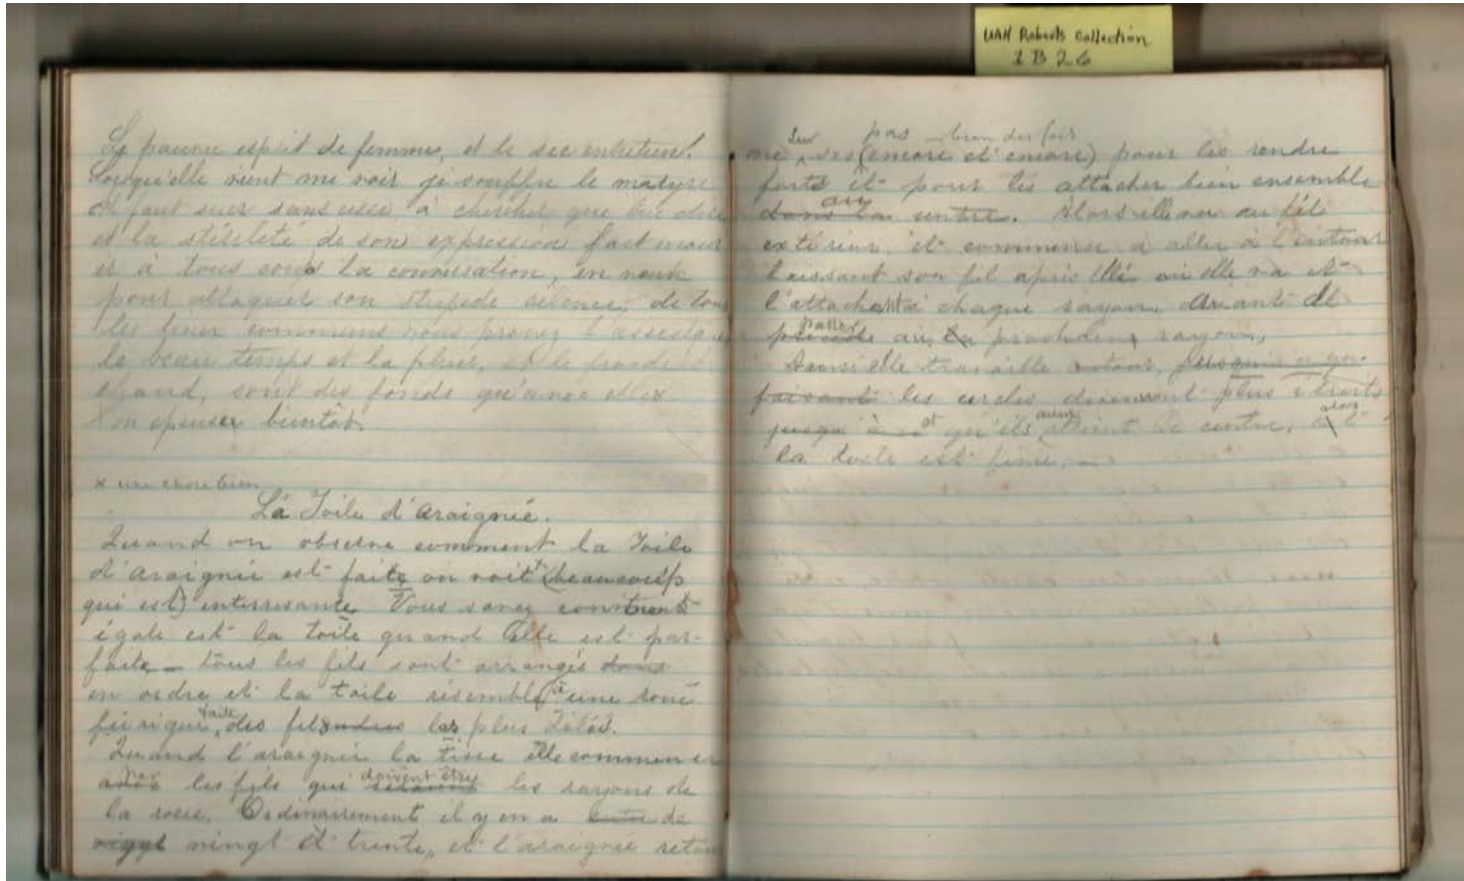 UAH Roberts Collection
1B26
Le pauvre esprit de femme, et le sec entretien!
Lorsqu'elle vient me voir je souffre le martyre
Il faut suer sans cesse à chercher que lui dire
et la stérileté de son expression fait mour
ir à tous coups la conversation, en vain
pour attaquer son stupide silence, de tous
les lieux communs vous prenez l'assistance
le beau temps et la pluie, et le froid et
chaud, sont des fonds qu'avec elle x
on epuiser bientôt.
x une chose bien
La Toile d'Araignée.
Quand on observe comment la Toile
d'Araignée est faite on voit (beaucoup
qui est) interressante. Vous savez comment
égale est la toile quand elle est par-
faite — tous les fils sont arrangés dans
en ordre et la toile résemble à une roue
féerique, faite des fils les plus
Quand l'araignée la tisse elle commence
avec par les fils qui doivent être les rayons de
la roue. Ordinairement il y en a entre de
vingt et trente, et l'araignée retour
sur pas bien des fois
ne ses (encore et encore) pour les rendre
forts et pour les attacher bien ensemble
dans la au centre. Alors elle va au
extérieur et commence à aller à l'entour
laissant son fil après elle où elle va et
l'attachent à chaque rayon, avant de
passer au prochain rayon,
Ainsi elle travaille autour,
faisant les cercles deviennent plus étroits
jusqu'à ce qu'ils le centre, alors
la toile est finie. —